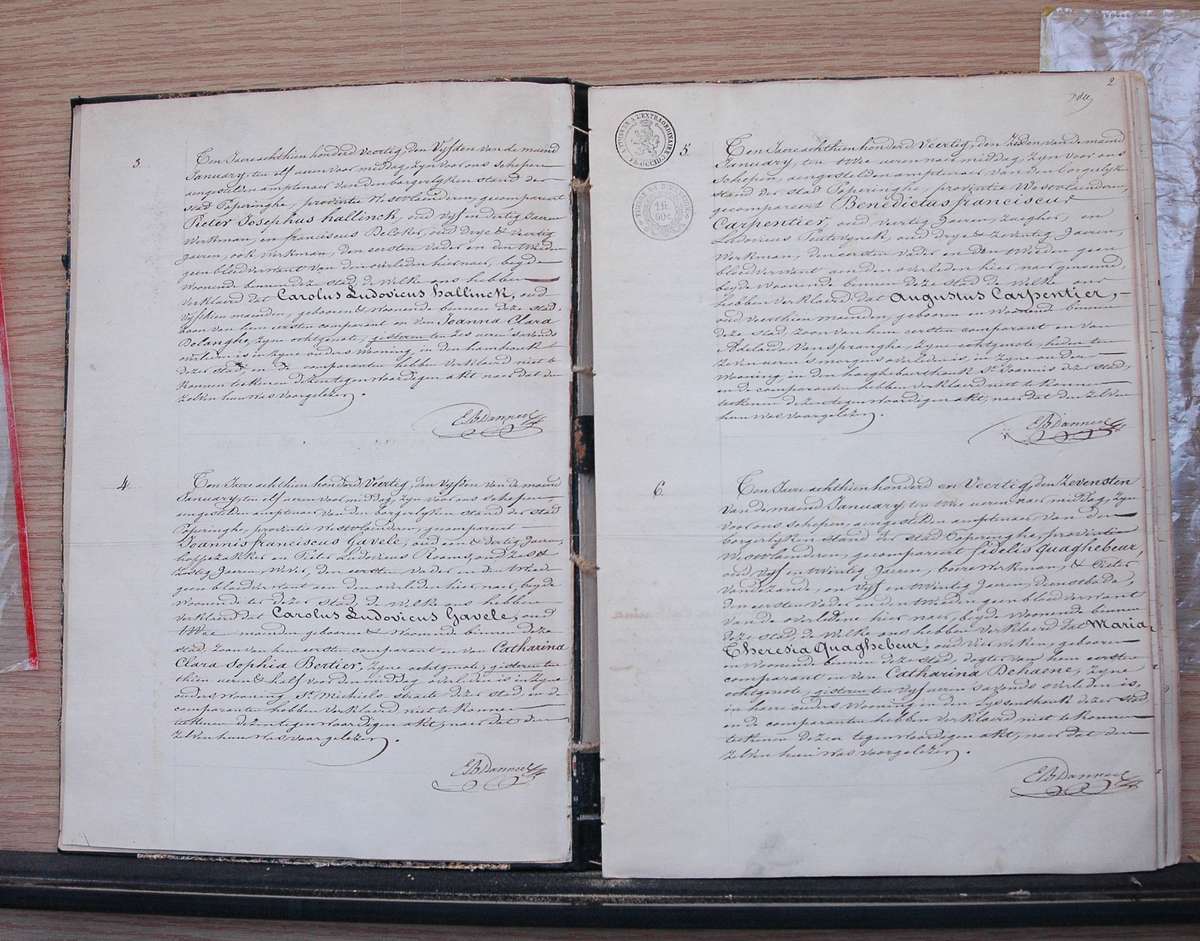 3.
Ten Jaere achthien honderd veertig den Vyfsten van de maend
January, ten elf uren voor middag, zyn voor ons schepen
aengestelden amptenaer van den borgerlyken stand der
stad Poperinghe, provintie Westvlanderen, gecompareert
Pieter Josephus Hallinck, oud vyf en dertig Jaeren
Werkman, en franciscus De Coster, oud drye & veertig
Jaeren, ook werkman, den eersten vader en den tweeden
geen bloedverwant van den overleden hier naer, beyde
woonend binnen deze stad de welke ons hebben
verklaerd dat Carolus Ludovicus Hallinck, oud
vyfthien maenden, gebooren & woonende binnen deze stad,
zoon van hem eersten comparant en van Joanna Clara
Delanghe, zyne echtgenote, gisteren ten zes uren s'avonds
overleden is in zyne ouders wooning in den
dezer stad en de comparanten hebben verklaerd niet te
konnen teekenen dezen tegenwoordigen akt naer dat den
zelven hun was voorgelezen.
4.
Ten Jaere achthien honderd Veertig, den Vyfsten van de maend
January, ten elf uren voor middag, zyn voor ons schepen
aengestelden amptenaer van den borgerlyken stand der stad
Poperinghe, provintie Westvlanderen, gecompareert
Joannes franciscus Gavele, oud een & dertig Jaeren,
en Pieter Ludovicus Rooms, oud zes &
Jaeren, den eersten vader en den tweeden
geen bloedverwant aen den overleden hier naer, beyde
woonend ter dezer stad de welke ons hebben
verklaerd dat Carolus Ludovicus Gavele, oud
twee maenden gebooren & woonend binnen deze
stad, zoon van hem eersten comparant en van Catharina
Clara Sophia Bertier, zyne echtgenote, gisteren ten
thien uren & half voor den middag overleden is in zyne
ouders wooning St Michiels straete dezer stad, en de
comparanten hebben verklaerd niet te konnen
teekenen dezen tegenwoordigen akt, naer dat den
zelven hun was voorgelezen.
2
5.
Ten Jaere achthien honderd Veertig, den zesden van de maend
January, ten twee uren naer middag, zyn voor ons
schepen, aengestelden amptenaer van den borgerlyken
stand der stad Poperinghe, provintie Westvlanderen,
gecompareert Benedictus franciscus
Carpentier, oud veertig Jaeren, zaeger, en
Ludovicus oud drye & Jaeren,
Werkman, den eersten vader en den tweeden geen
bloedverwant aen den overleden hier naer genoemd,
beyde woonende binnen deze stad de welke ons
hebben verklaerd dat Augustus Carpentier,
oud veerthien maenden, gebooren en woonend binnen
deze stad zoon van hem eersten comparant en van
Adelaida Vanspranghe, zyne echtgenote, heden ten
zeven uren s'morgens overleden is, in zyne ouders
wooning in den St Joannis dezer stad,
en de comparanten hebben verklaerd niet te konnen
teekenen dezen tegenwoordigen akt, naer dat den zelven
hun was voorgelezen.
6.
Ten Jaere achthien honderd en Veertig, den Zevensten
van de maend January ten twee uren naer middag, zyn
voor ons schepen, aengestelden amptenaer van den
borgerlyken stand der stad Poperinghe, provintie
Westvlanderen, gecompareert fidelis Quaghebeur,
oud vyf en twintig Jaeren, Werkman, & Pieter
oud vyf en twintig Jaeren,
den eersten vader en den tweeden geen bloedverwant
van de overledene hier naer, beyde woonende binnen
deze stad de welke ons hebben verklaerd dat Maria
Theresia Quaghebeur, oud vier weken, gebooren
en woonend binnen deze stad, dogter van hem eersten
comparant en van Catharina Dehaene, zyne
echtgenote, gisteren ten vyf uren s'avonds overleden is,
in haere ouders wooning in den dezer stad
en de comparanten hebben verklaerd niet te konnen
teekenen dezen tegenwoordigen akt, naer dat den
zelven hun was voorgelezen.